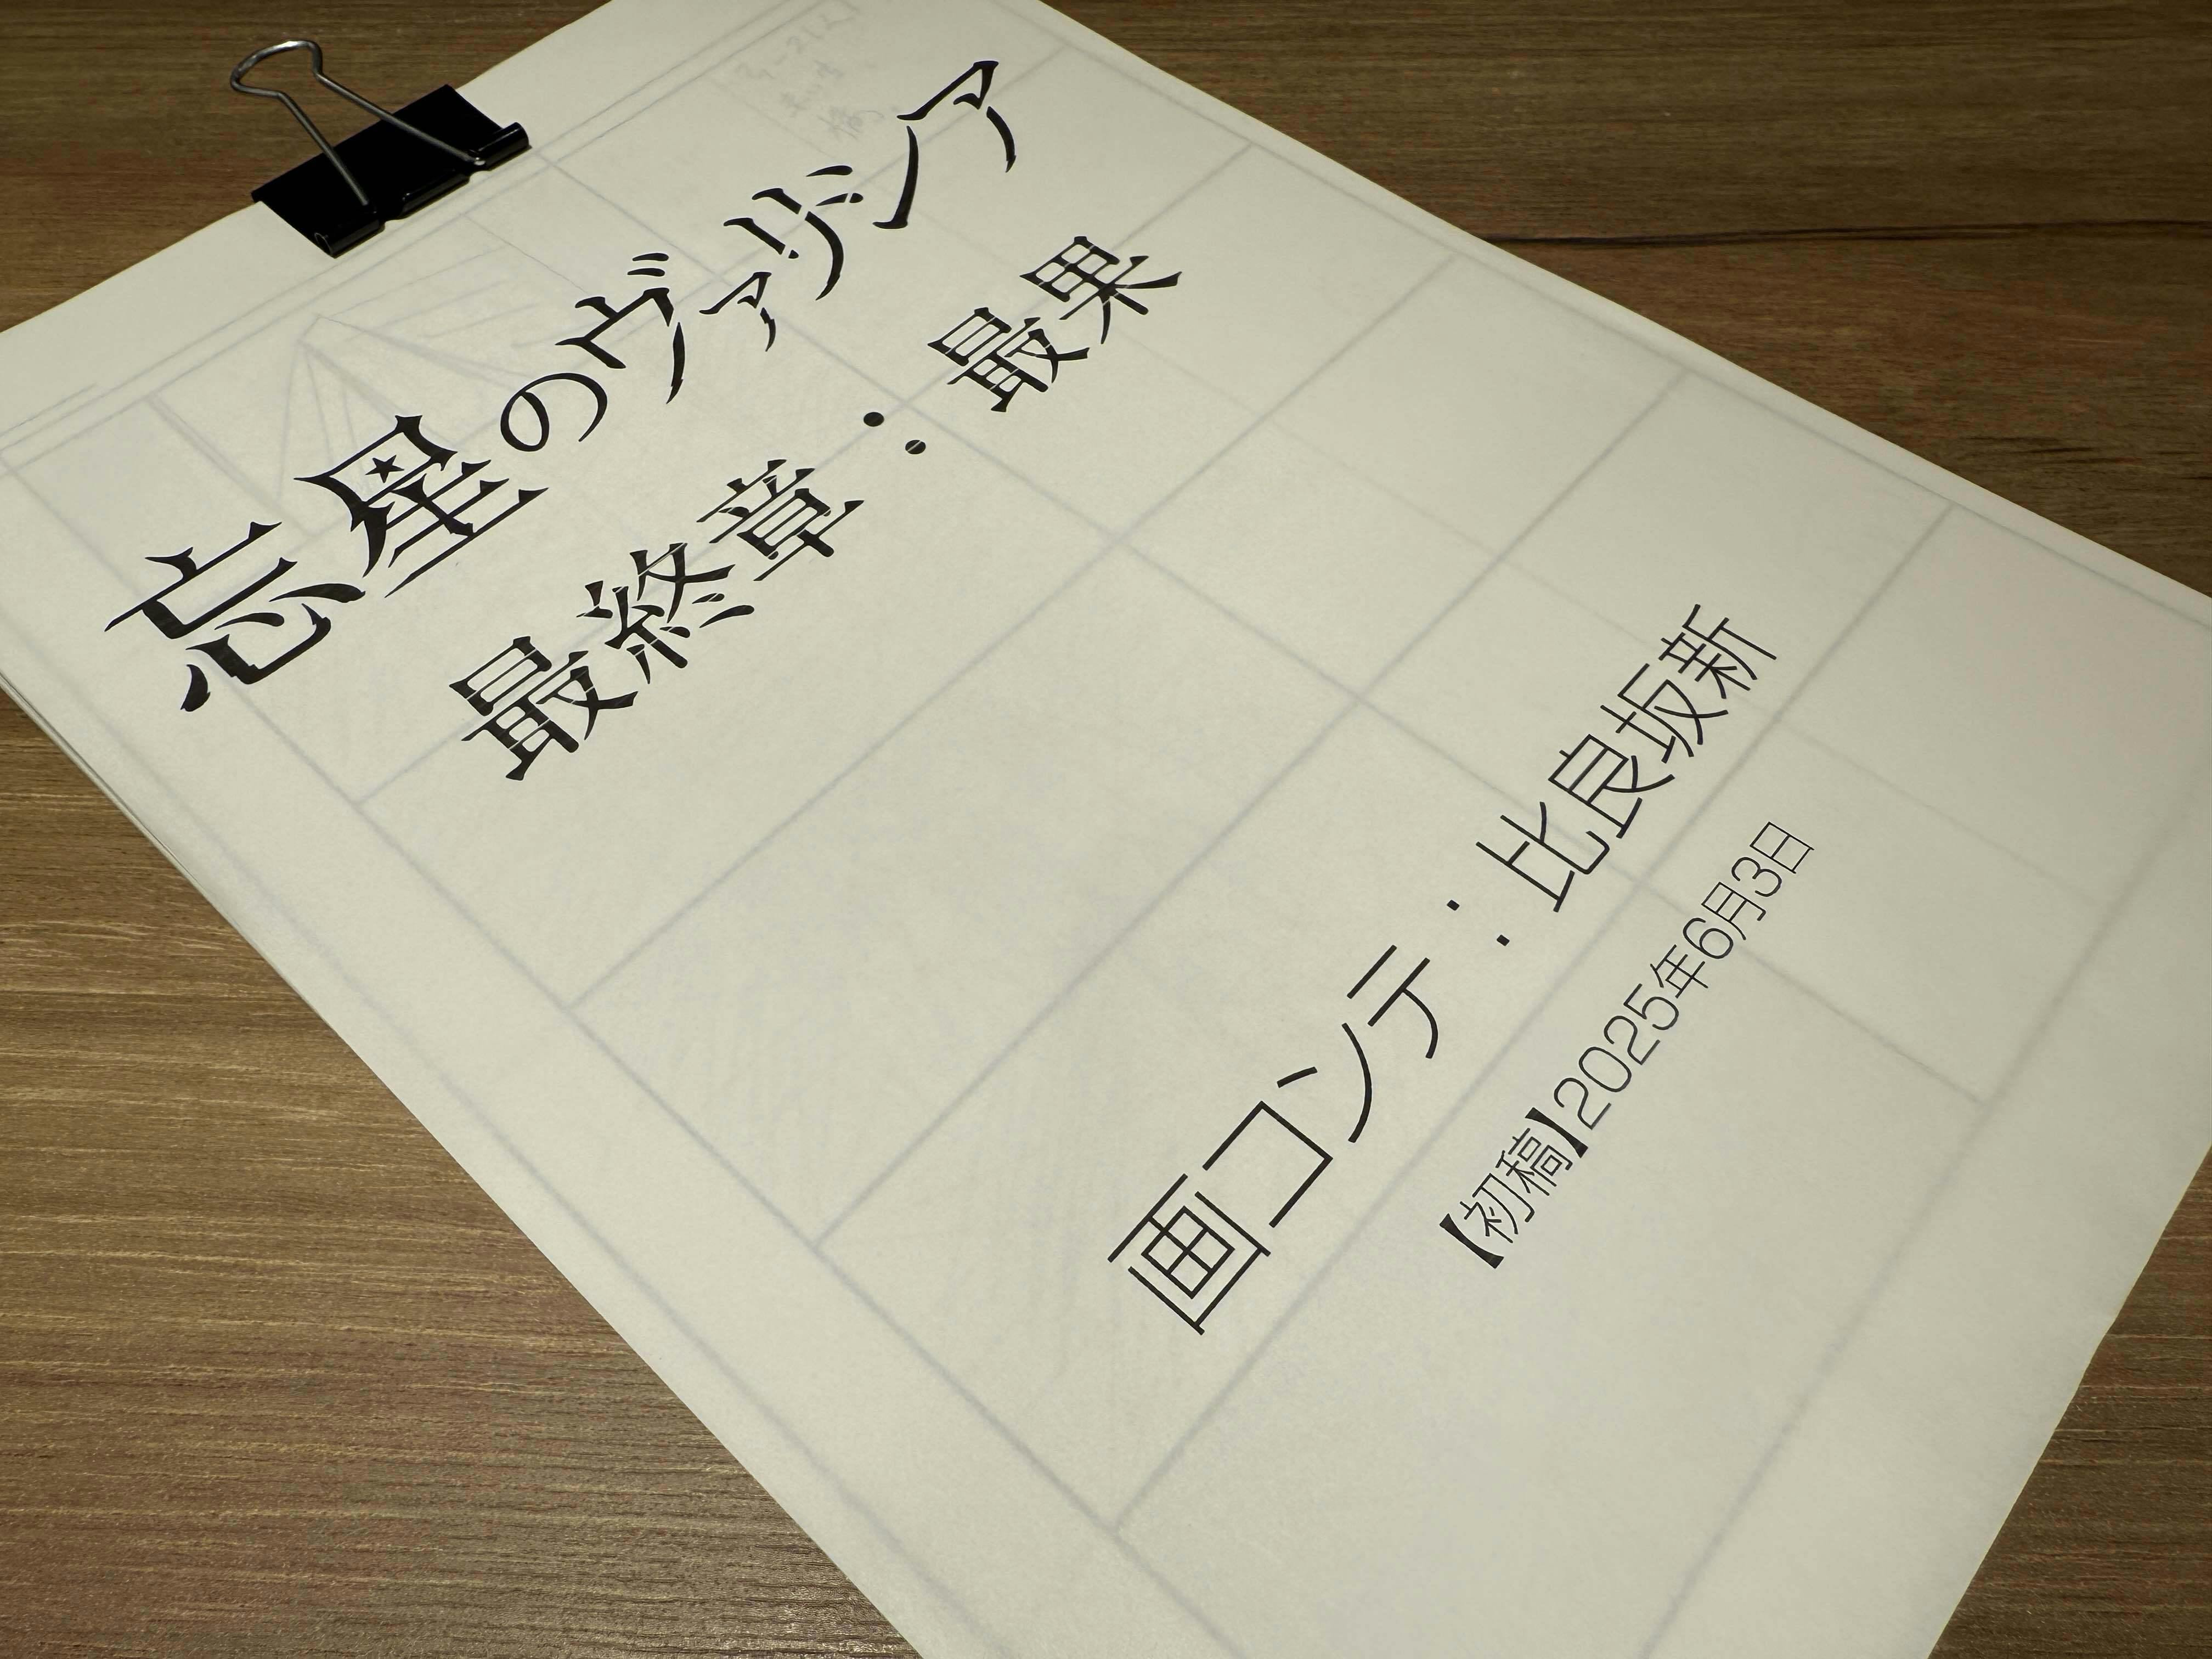 忘星のヴァリシア
最終章：最果
画コンテ：比良坂新
【初稿】2025年6月3日